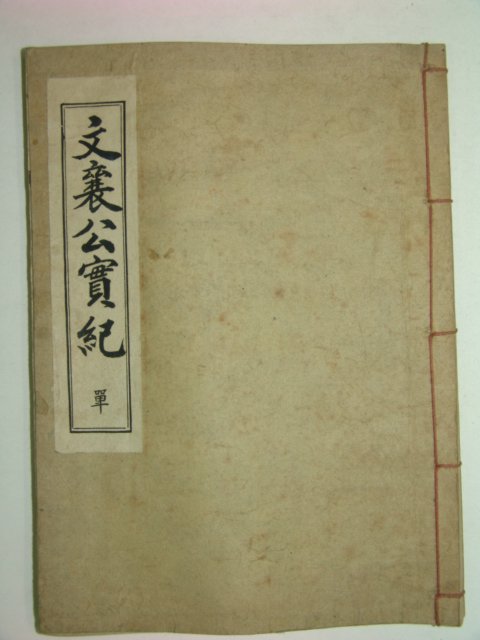 文襄公實紀
單